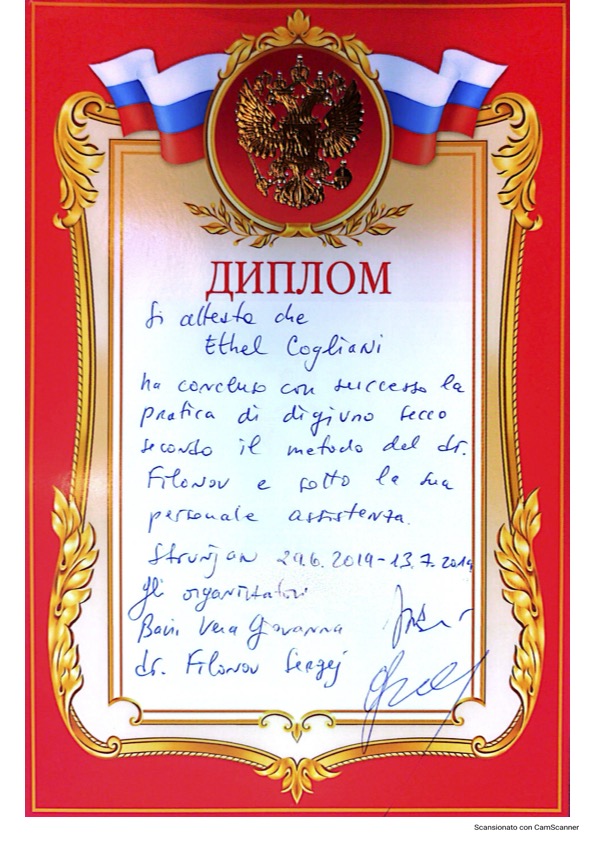 ДИПЛОМ
Si attesta che
Ethel Cogliani
ha concluso con successo la
pratica di digiuno secco
secondo il metodo del dr.
Filonov e sotto la sua
personale assistenza.
Strunjan 29.6.2019-13.7.2019
gli organizzatori
Vera Giovanna
dr. Filonov Sergej
Scansionato con CamScanner